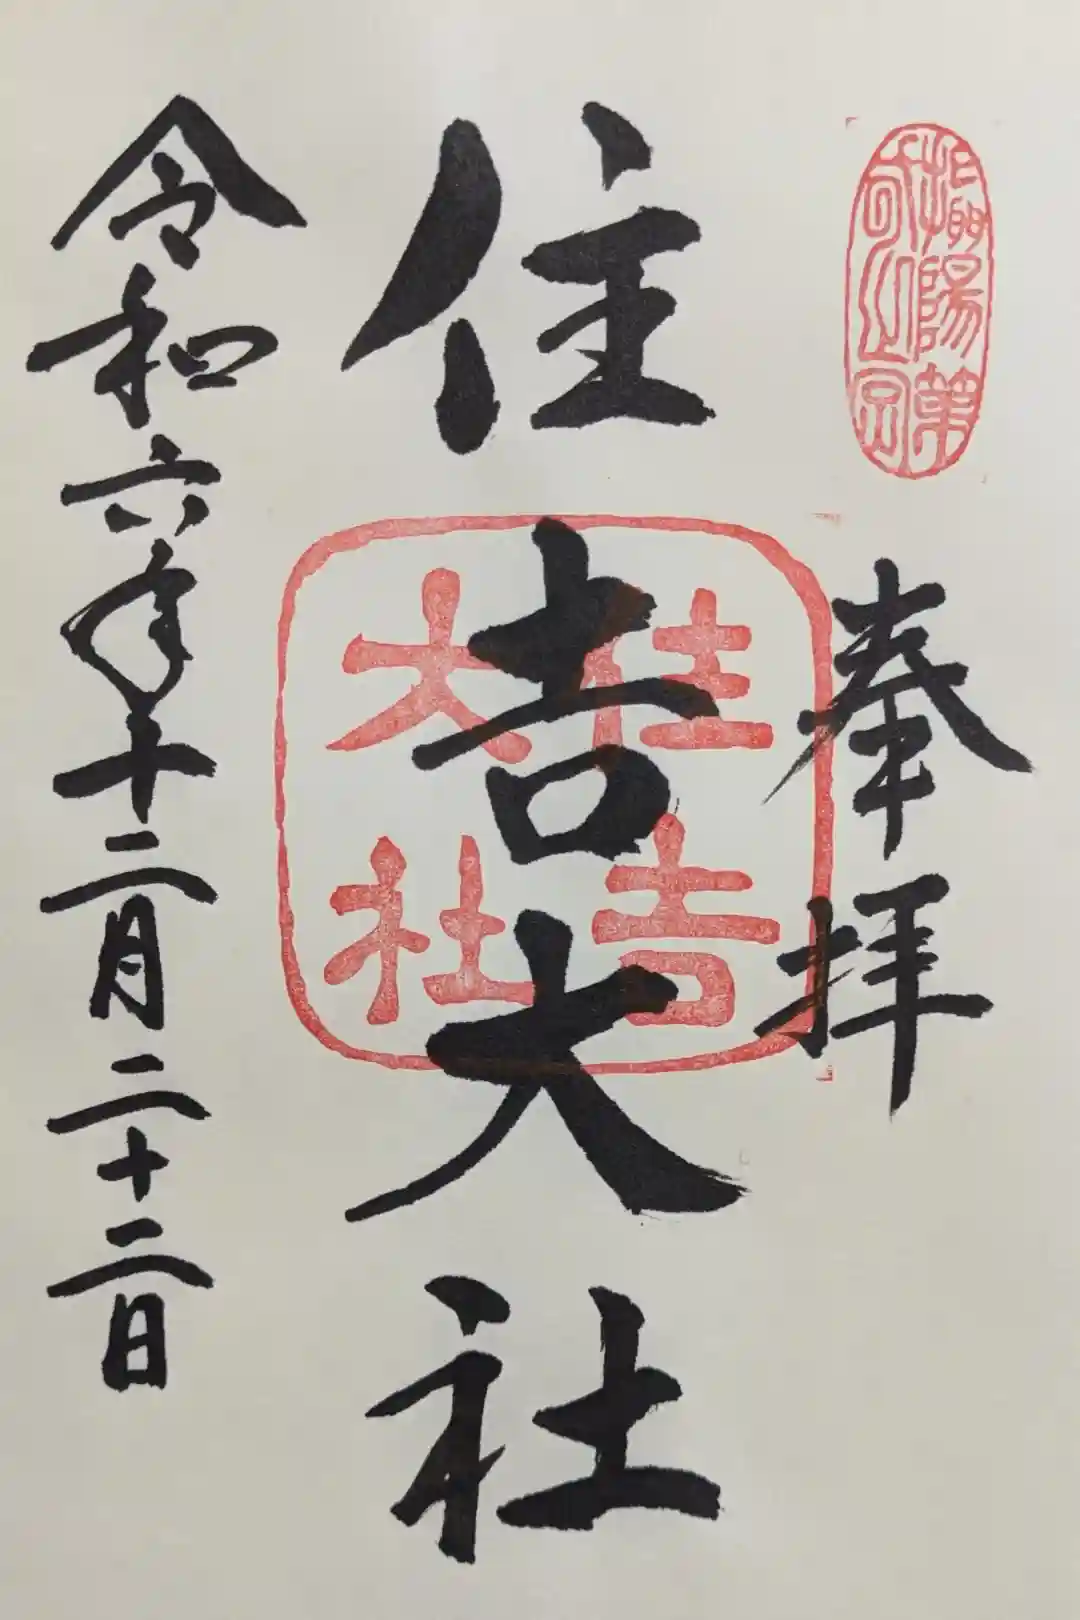 奉拝
住吉大社
住吉
大社
令和六年十二月二十二日